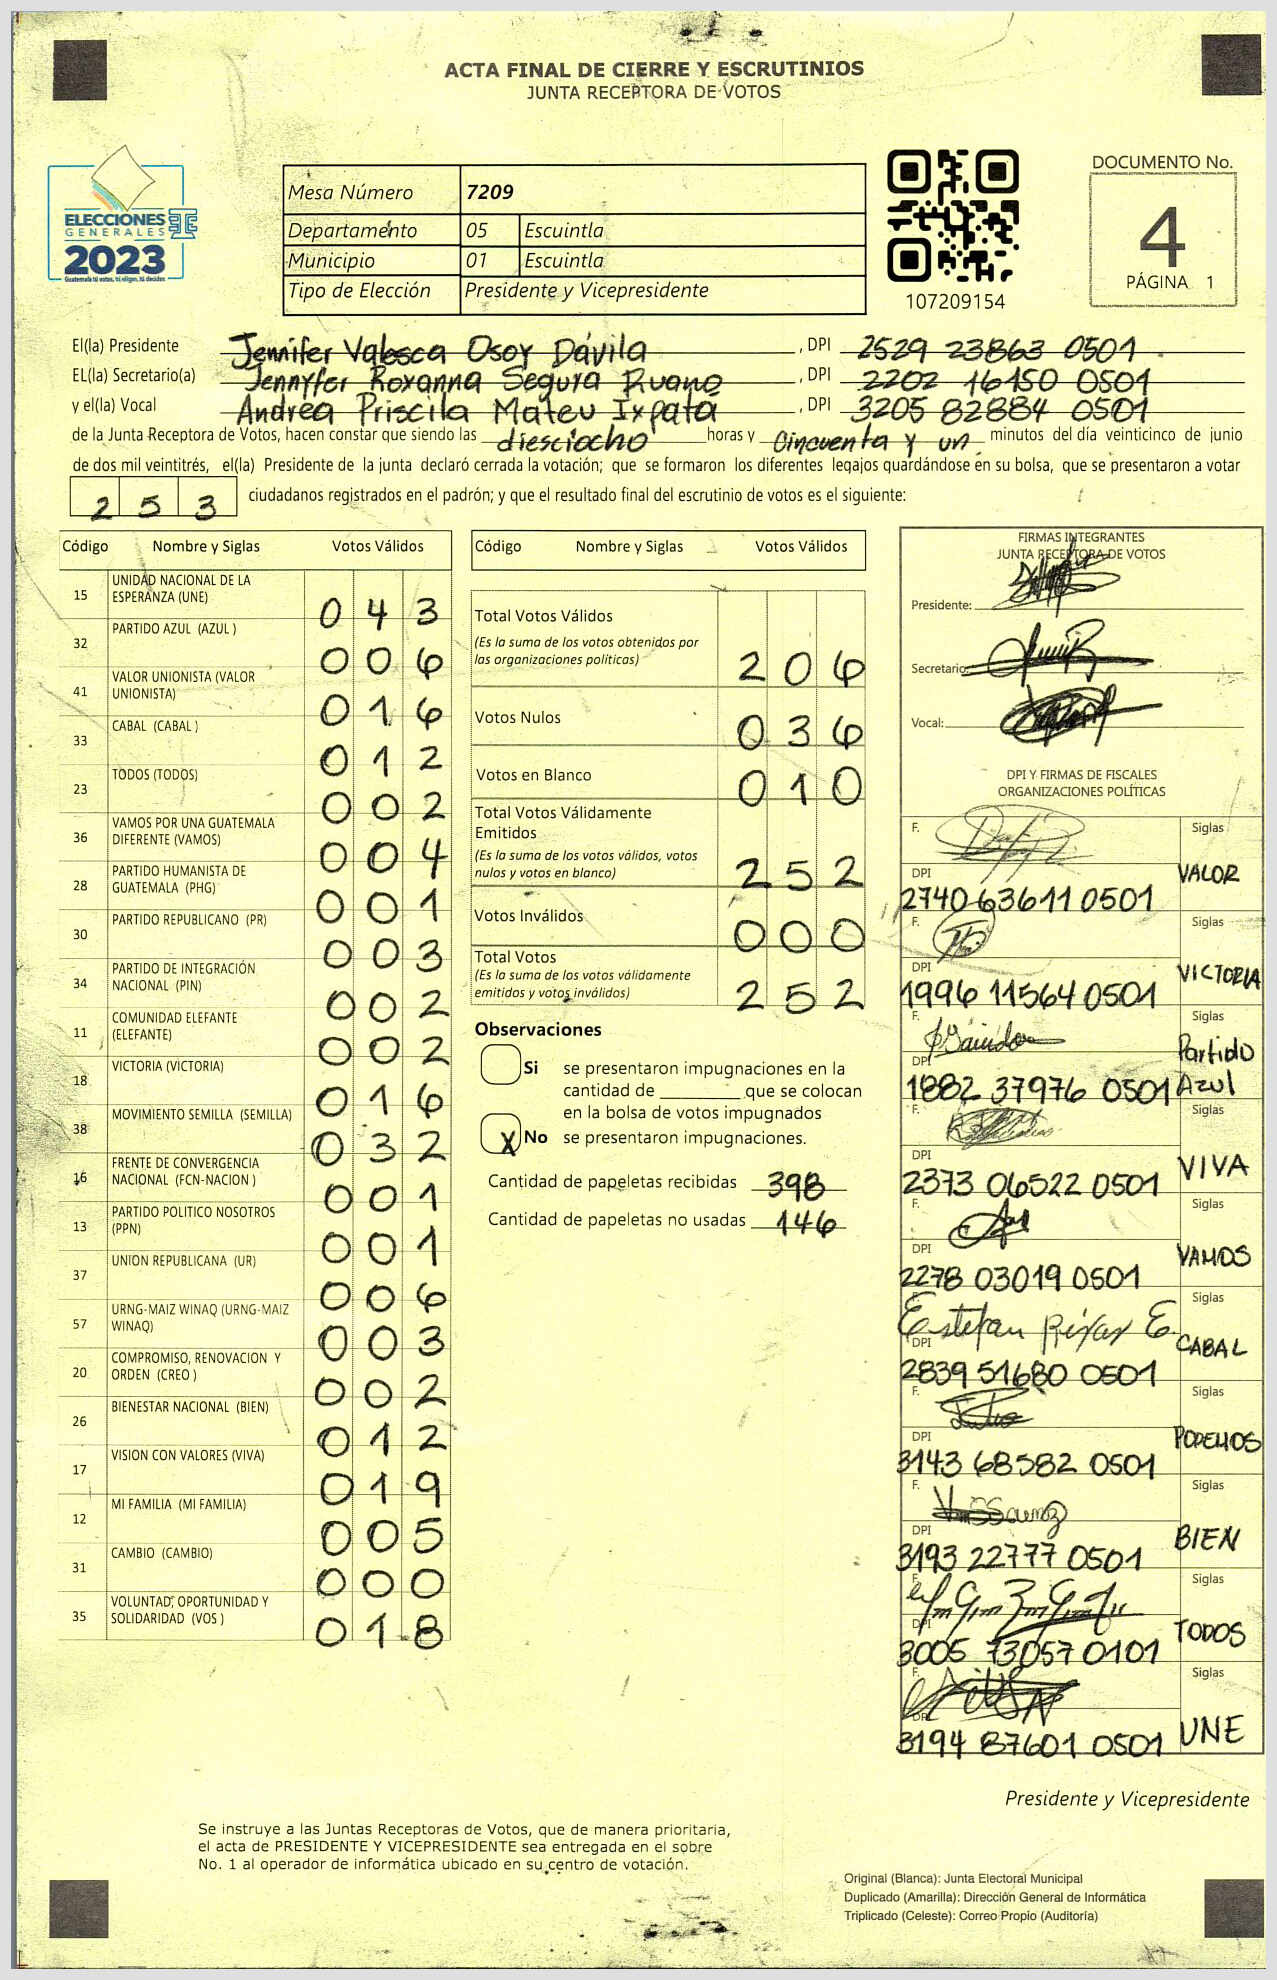 ACTA FINAL DE CIERRE Y ESCRUTINIOS
JUNTA RECEPTORA DE VOTOS
ELECCIONES
GENERALES
2023
Guatemala tú votas, tú eliges, tú decides
Mesa Número 7209
Departamento 05 Escuintla
Municipio 01 Escuintla
Tipo de Elección Presidente y Vicepresidente
107209154
DOCUMENTO No.
4
PÁGINA 1
El(la) Presidente Jennifer Valesca Osoy Dávila , DPI 2529 23863 0501
EL(la) Secretario(a) Jennyfer Roxanna Segura Ruano , DPI 2202 16150 0501
y el(la) Vocal Andrea Priscila Mateu Ixpatá , DPI 3205 82884 0501
de la Junta Receptora de Votos, hacen constar que siendo las diesciocho horas y cincuenta y un minutos del día veinticinco de junio
de dos mil veintitrés, el(la) Presidente de la junta declaró cerrada la votación; que se formaron los diferentes legajos guardándose en su bolsa, que se presentaron a votar
253 ciudadanos registrados en el padrón; y que el resultado final del escrutinio de votos es el siguiente:
Código Nombre y Siglas Votos Válidos
15 UNIDAD NACIONAL DE LA ESPERANZA (UNE) 043
32 PARTIDO AZUL (AZUL ) 006
41 VALOR UNIONISTA (VALOR UNIONISTA) 016
33 CABAL (CABAL ) 012
23 TODOS (TODOS) 002
36 VAMOS POR UNA GUATEMALA DIFERENTE (VAMOS) 004
28 PARTIDO HUMANISTA DE GUATEMALA (PHG) 001
30 PARTIDO REPUBLICANO (PR) 003
34 PARTIDO DE INTEGRACIÓN NACIONAL (PIN) 002
11 COMUNIDAD ELEFANTE (ELEFANTE) 002
18 VICTORIA (VICTORIA) 016
38 MOVIMIENTO SEMILLA (SEMILLA) 032
16 FRENTE DE CONVERGENCIA NACIONAL (FCN-NACION ) 001
13 PARTIDO POLITICO NOSOTROS (PPN) 001
37 UNION REPUBLICANA (UR) 006
57 URNG-MAIZ WINAQ (URNG-MAIZ WINAQ) 003
20 COMPROMISO, RENOVACION Y ORDEN (CREO ) 002
26 BIENESTAR NACIONAL (BIEN) 012
17 VISION CON VALORES (VIVA) 019
12 MI FAMILIA (MI FAMILIA) 005
31 CAMBIO (CAMBIO) 000
35 VOLUNTAD, OPORTUNIDAD Y SOLIDARIDAD (VOS ) 018
Código Nombre y Siglas Votos Válidos
Total Votos Válidos
(Es la suma de los votos obtenidos por
las organizaciones políticas) 206
Votos Nulos 036
Votos en Blanco 010
Total Votos Válidamente
Emitidos
(Es la suma de los votos válidos, votos
nulos y votos en blanco) 252
Votos Inválidos 000
Total Votos
(Es la suma de los votos válidamente
emitidos y votos inválidos) 252
Observaciones
Si se presentaron impugnaciones en la
cantidad de ________ que se colocan
en la bolsa de votos impugnados
X No se presentaron impugnaciones.
Cantidad de papeletas recibidas 398
Cantidad de papeletas no usadas 146
FIRMAS INTEGRANTES
JUNTA RECEPTORA DE VOTOS
Presidente:
Secretario
Vocal:
DPI Y FIRMAS DE FISCALES
ORGANIZACIONES POLÍTICAS
F. Siglas
DPI VALOR
2740 63611 0501
F. Siglas
DPI VICTORIA
1996 11564 0501
F. Siglas
DPI Partido Azul
1882 37976 0501
F. Siglas
DPI VIVA
2373 06522 0501
F. Siglas
DPI VAMOS
2278 03019 0501
Siglas
Estefan Rivas E.
DPI CABAL
2839 51680 0501
F. Siglas
DPI PODEMOS
3143 68582 0501
F. Siglas
DPI BIEN
3193 22777 0501
F. Siglas
DPI TODOS
3005 73057 0101
F. Siglas
DPI UNE
3194 87601 0501
Presidente y Vicepresidente
Se instruye a las Juntas Receptoras de Votos, que de manera prioritaria,
el acta de PRESIDENTE Y VICEPRESIDENTE sea entregada en el sobre
No. 1 al operador de informática ubicado en su centro de votación.
Original (Blanca): Junta Electoral Municipal
Duplicado (Amarilla): Dirección General de Informática
Triplicado (Celeste): Correo Propio (Auditoría)